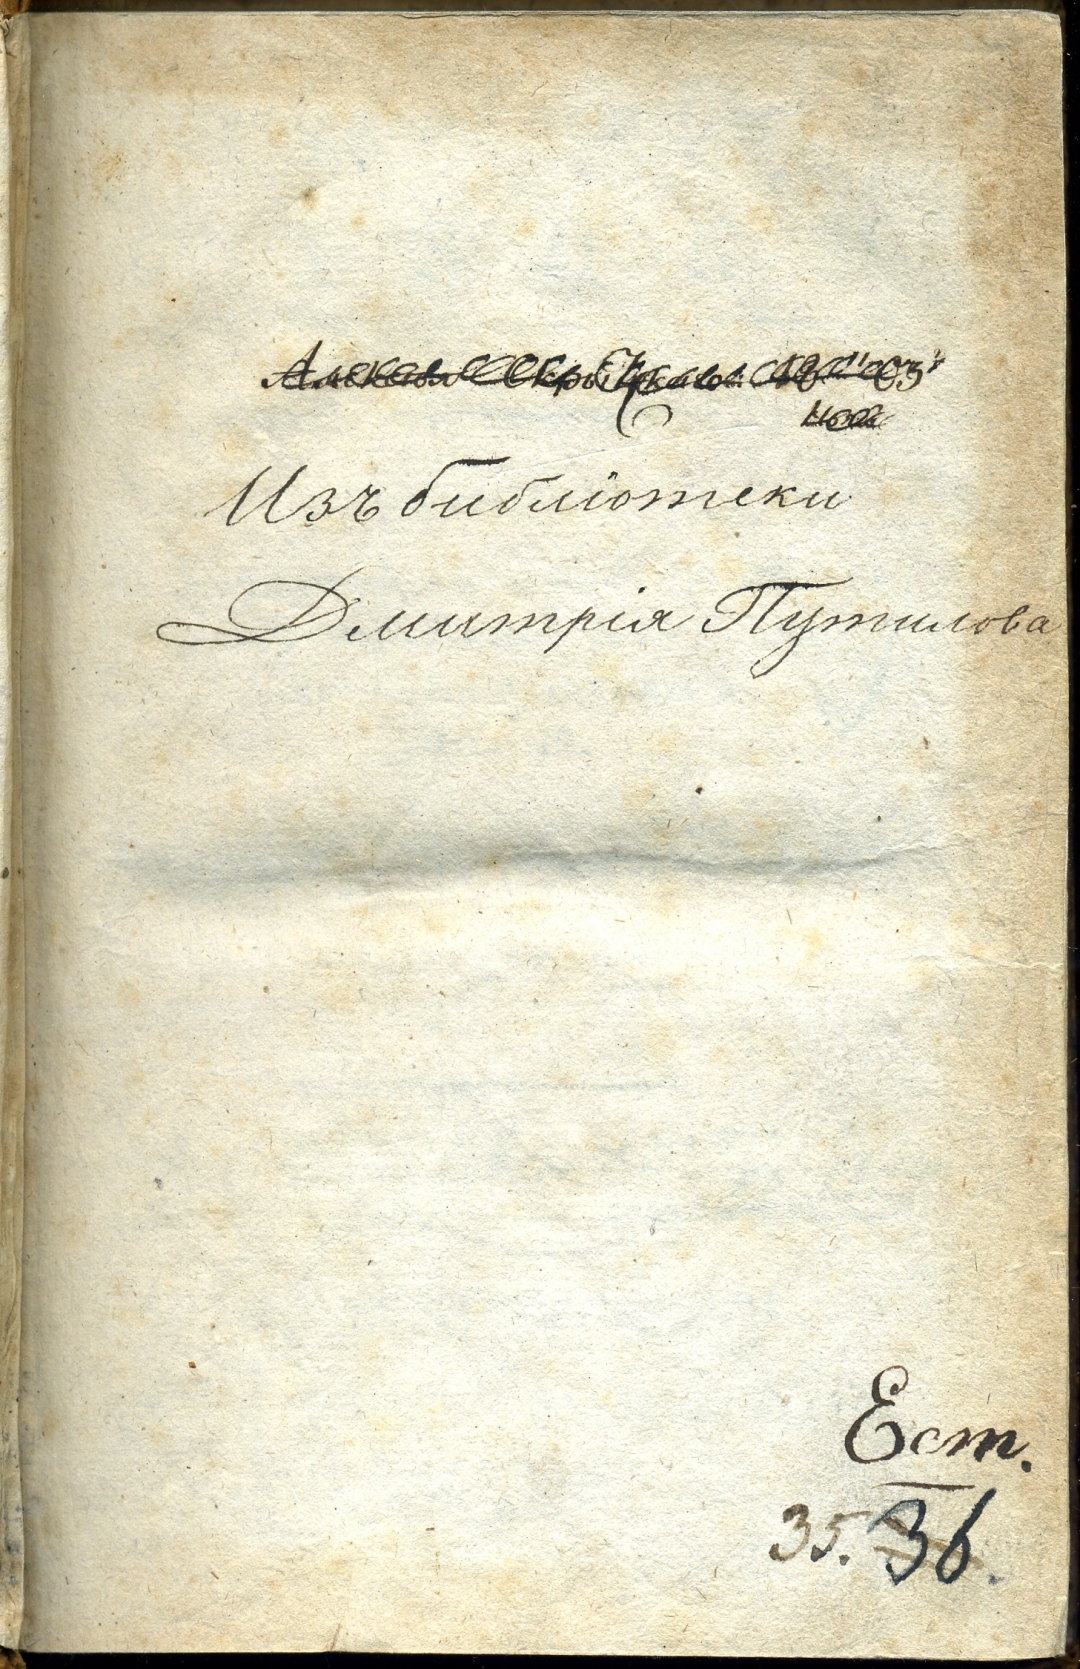 Изъ библіотеки
Дмитрія Путилова
Ест.
35. 36.